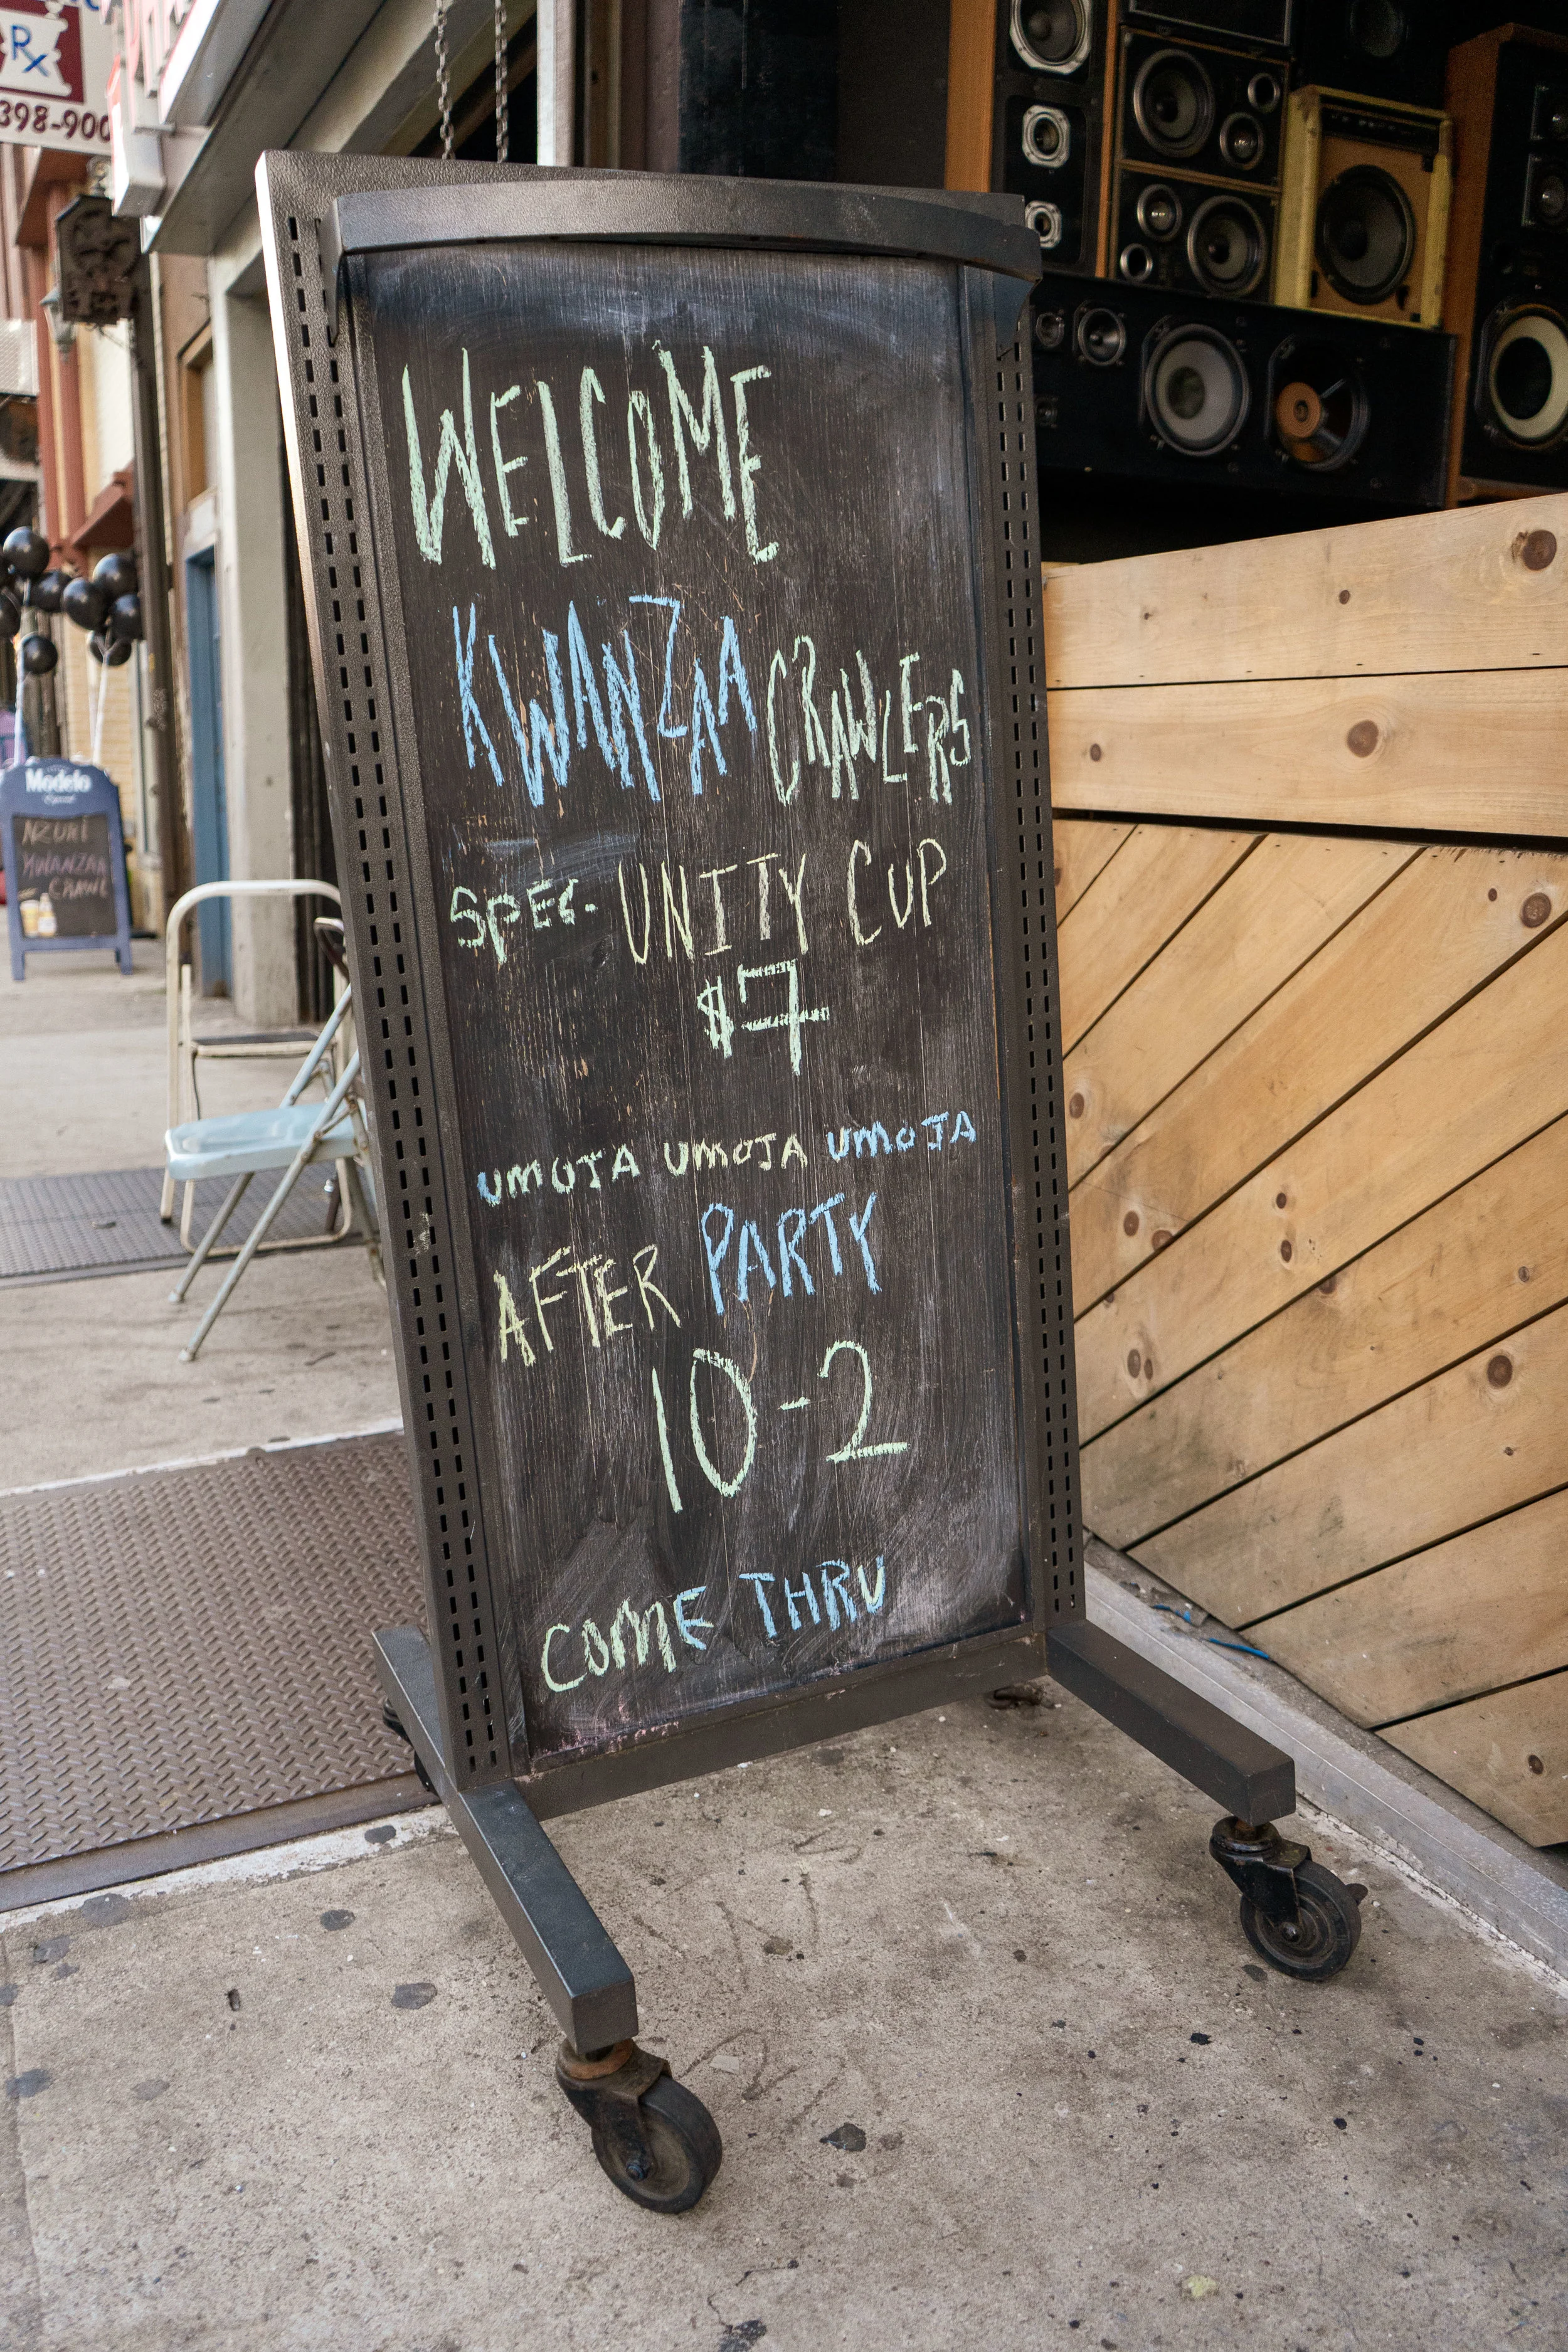 Rx
398-900
WELCOME
KWANZAA CRAWLERS
SPEC. UNITY CUP
$7
UMOJA UMOJA UMOJA
AFTER PARTY
10-2
COME THRU
Modelo
Especial
NZURI
KWANZAA
CRAWL